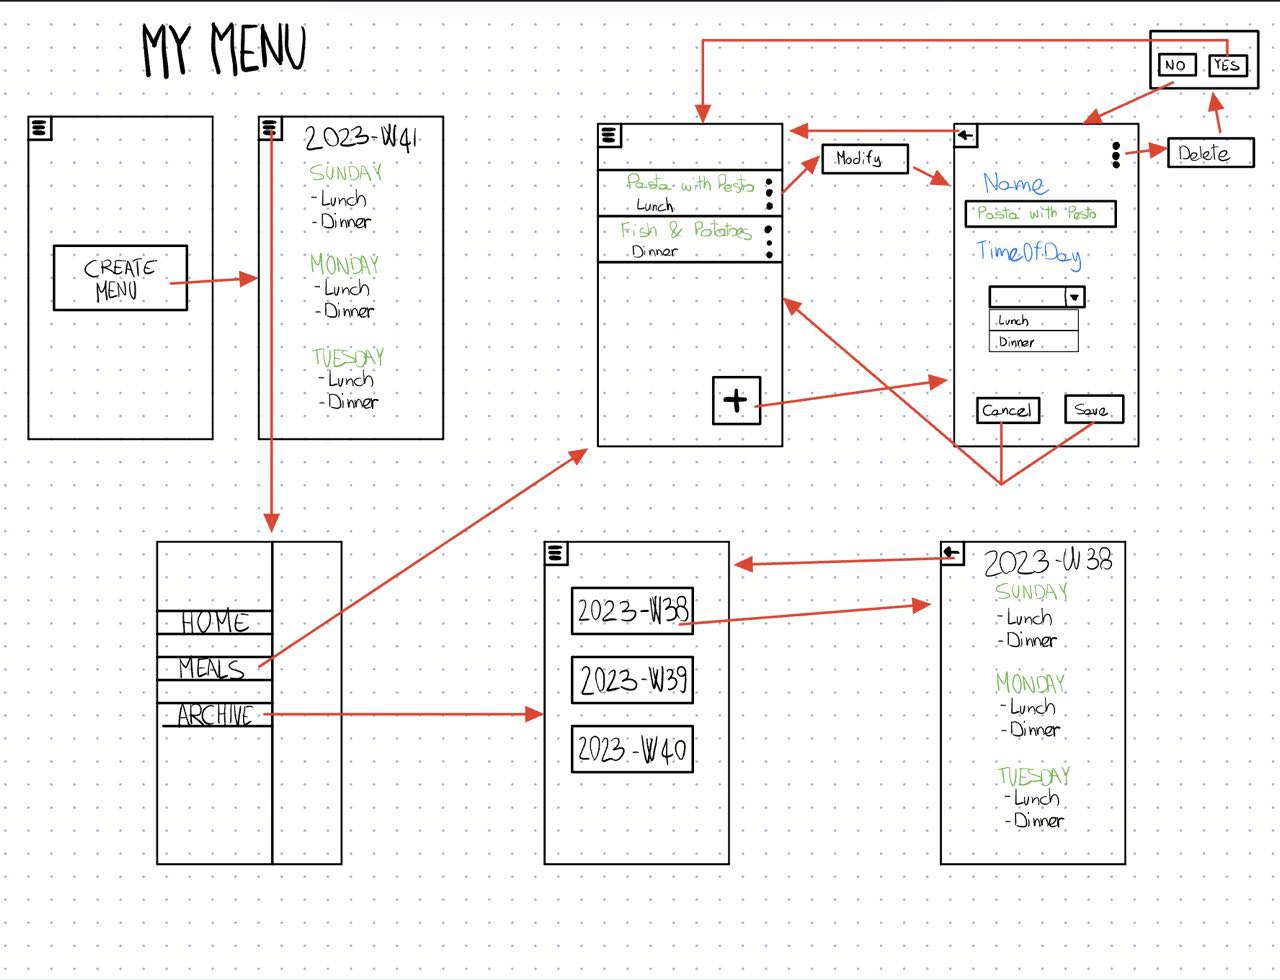 MY MENU
CREATE
MENU
2023-W41
SUNDAY
-Lunch
-Dinner
MONDAY
-Lunch
-Dinner
TUESDAY
-Lunch
-Dinner
Pasta with Pesto
Lunch
Fish & Potatoes
Dinner
+
Modify
Name
Pasta with Pesto
TimeOfDay
Lunch
Dinner
Cancel
Save
Delete
NO
YES
HOME
MEALS
ARCHIVE
2023-W38
2023-W39
2023-W40
2023-W38
SUNDAY
-Lunch
-Dinner
MONDAY
-Lunch
-Dinner
TUESDAY
-Lunch
-Dinner